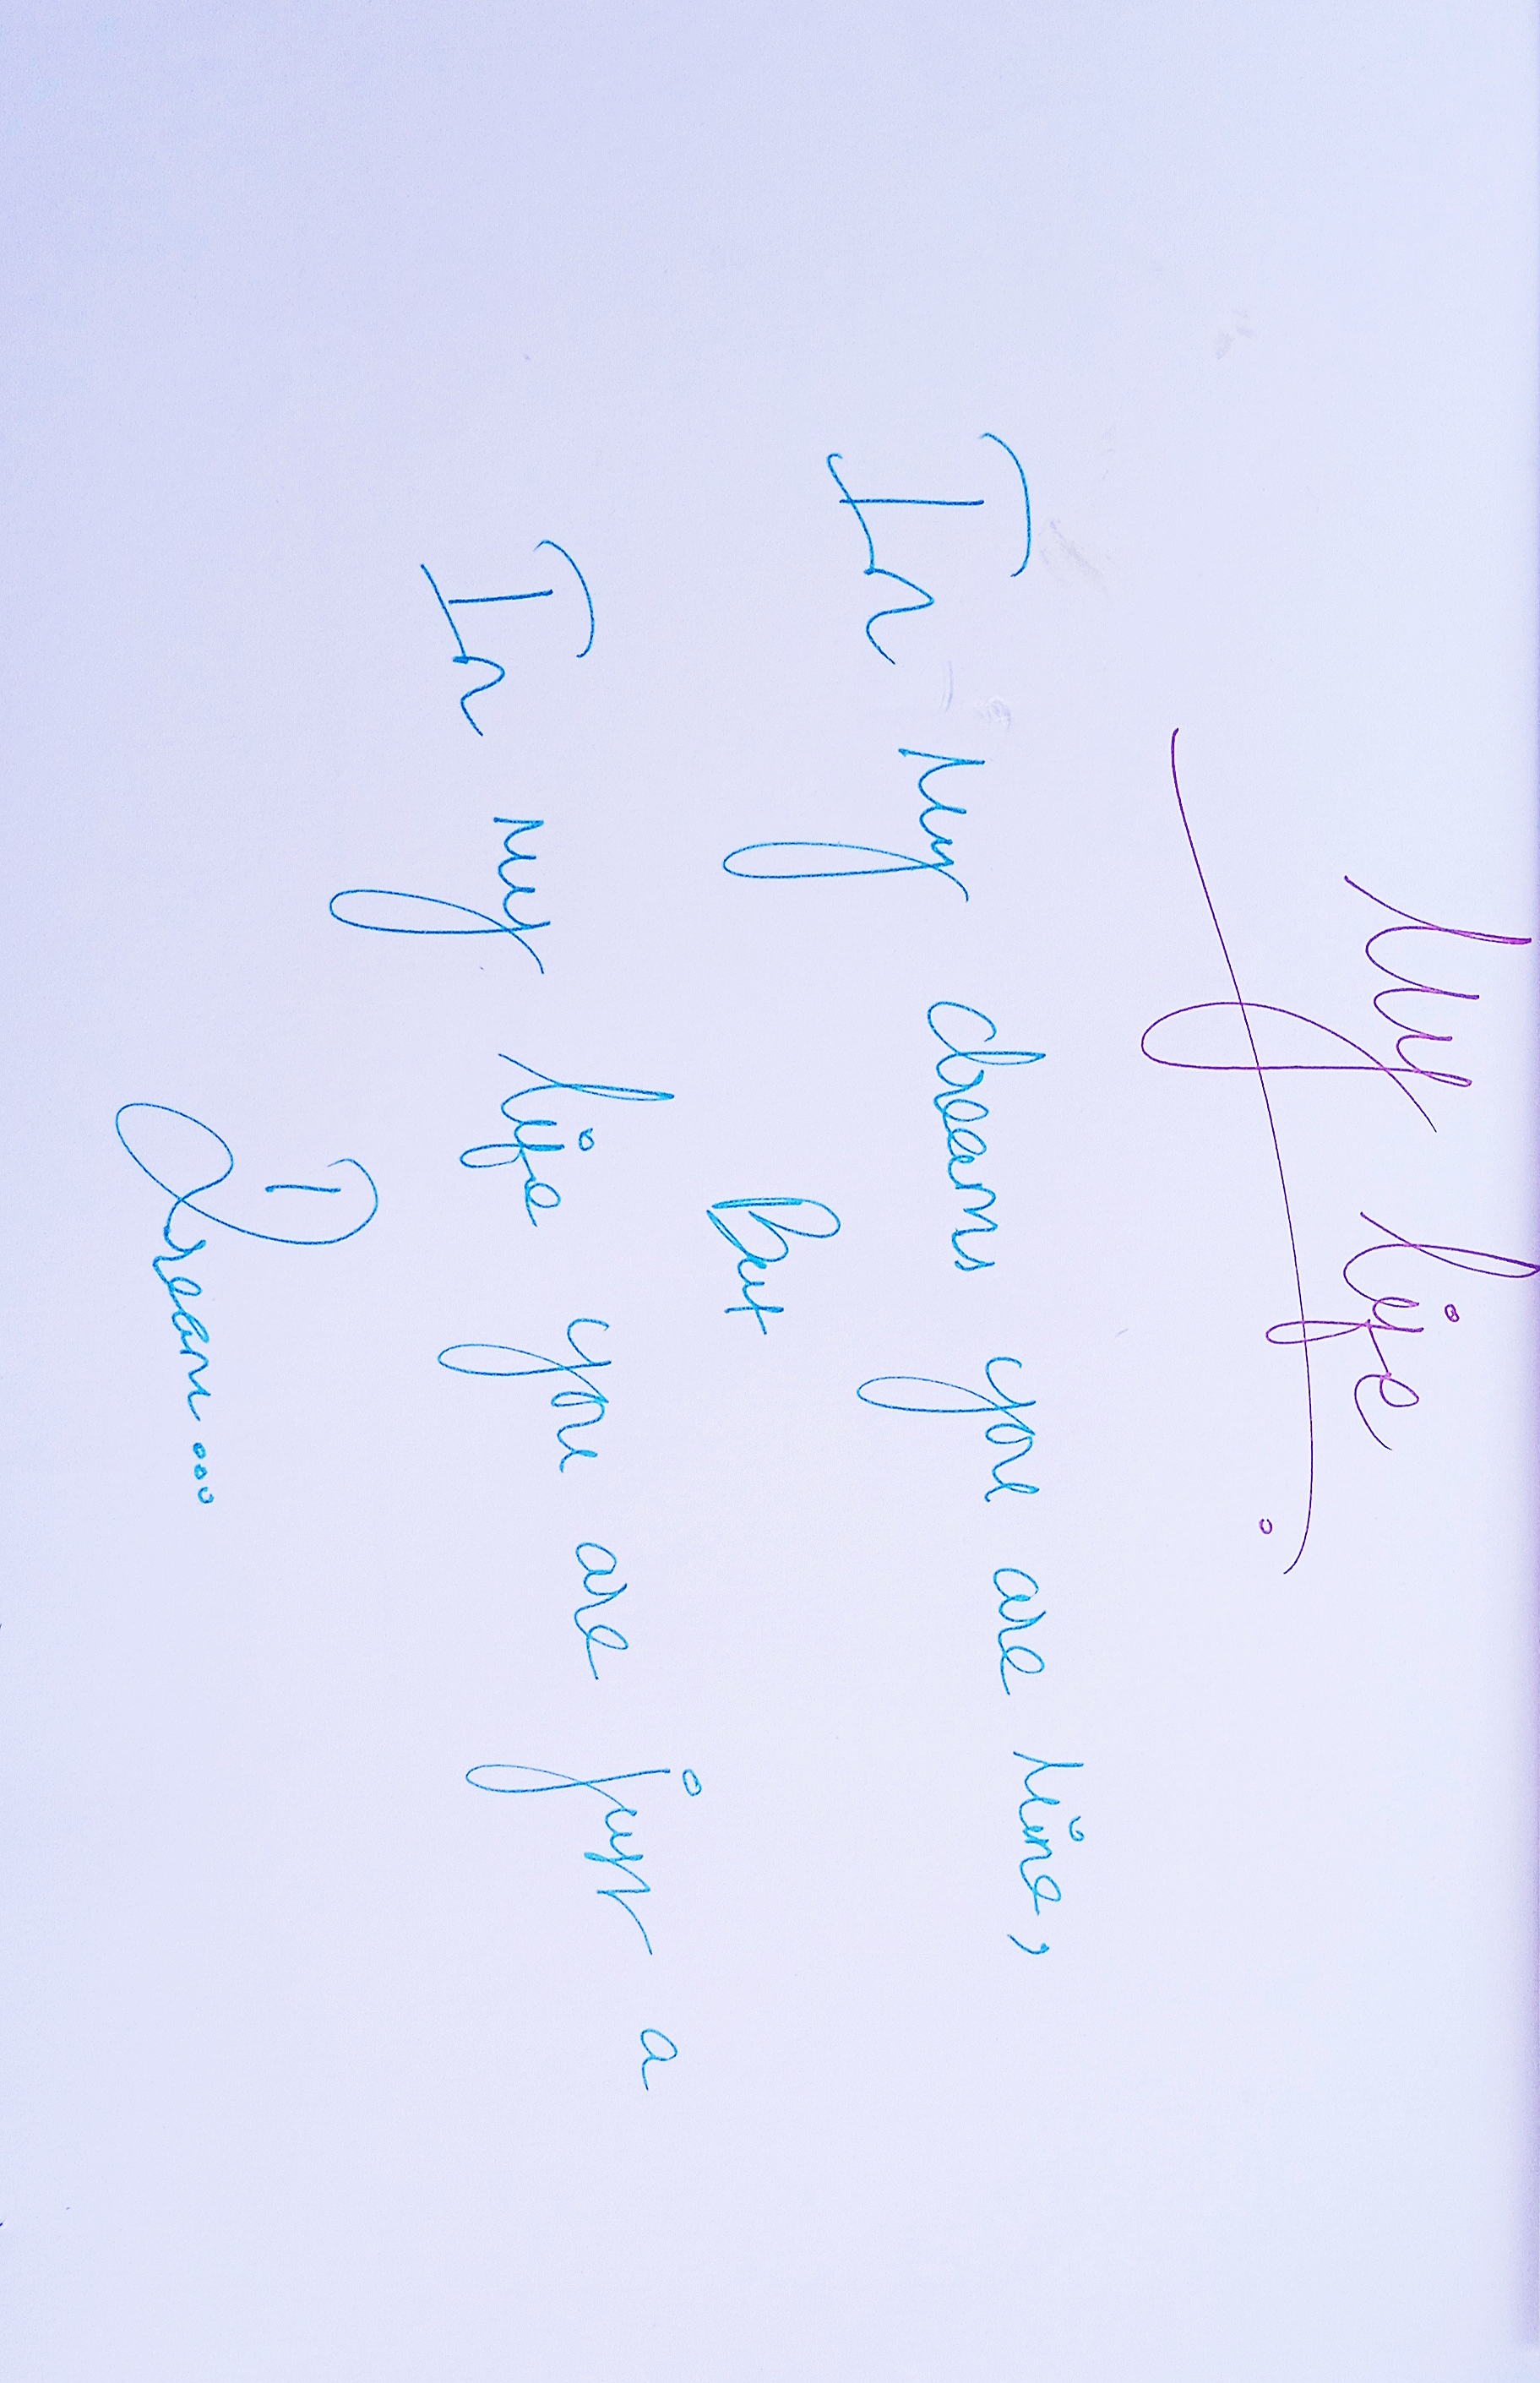 My life
In My dreams you are Mine,
But
In my life you are just a
Dream...